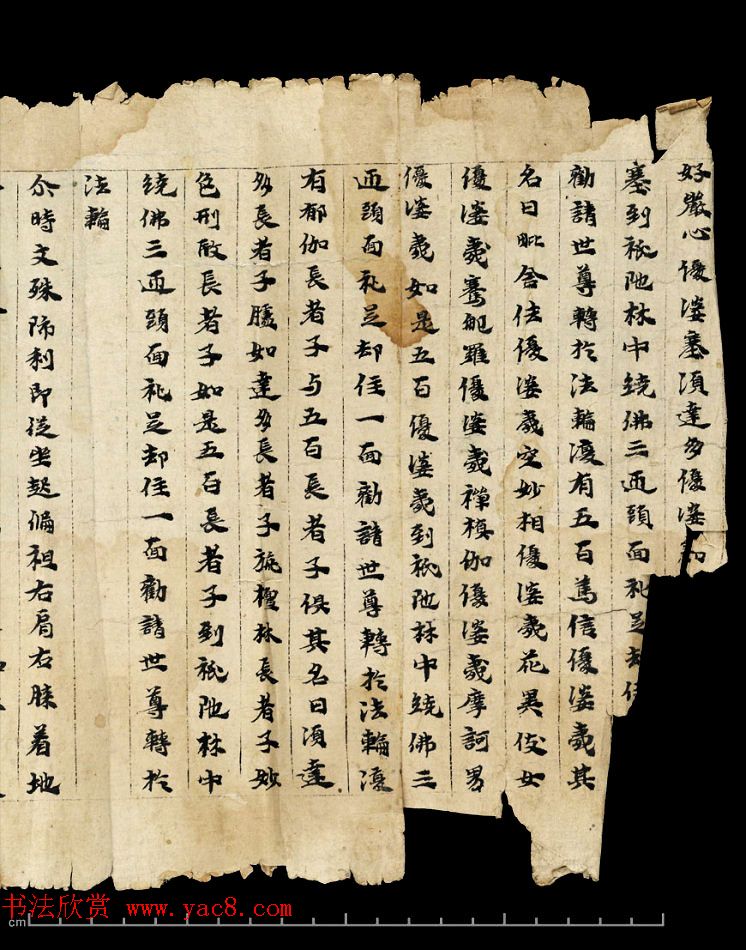 好嚴心優婆塞須達多優婆
塞到祇陁林中繞佛三迊頭面礼足却住
勸請世尊轉於法輪復有五百篤信優婆義其
名曰毗舍佉優婆義空妙相優婆義花異優女
優婆義騫毗羅優婆義禪模伽優婆義摩訶男
優婆義如是五百優婆義到祇陁林中繞佛三
迊頭面礼足却住一面勸請世尊轉於法輪復
有郁伽長者子与五百長者子俱其名曰須達
多長者子膝如達多長者子旃檀林長者子妙
色形長者子如是五百長者子到祇陁林中
繞佛三迊頭面礼足却住一面勸請世尊轉於
法輪
尒時文殊師利即從坐起偏袒右肩右膝着地
书法欣赏 www.yac8.com
cm